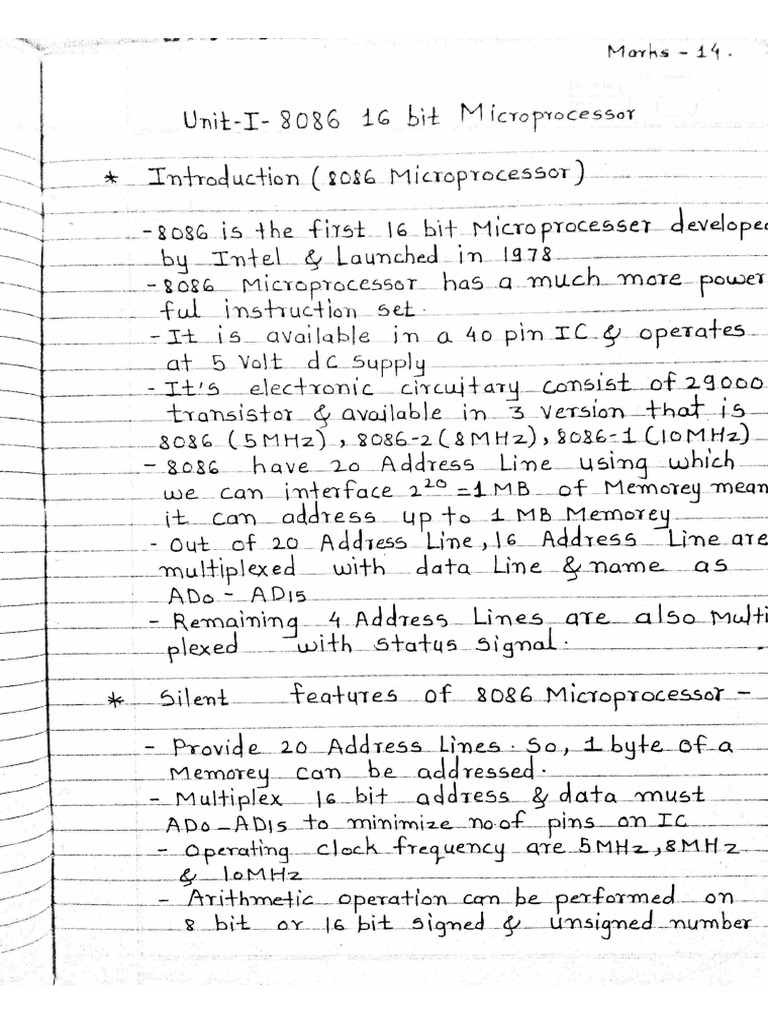 Marks - 14.
Unit-I- 8086 16 bit Microprocessor
* Introduction (8086 Microprocessor)
- 8086 is the first 16 bit Microprocesser develope
by Intel & Launched in 1978
- 8086 Microprocessor has a much more power
ful instruction set.
- It is available in a 40 pin IC & operates
at 5 volt dc supply
- It's electronic circuitary consist of 29000
transistor & available in 3 version that is
8086 (5MHz), 8086-2 (8MHz), 8086-1 (10MHz)
- 8086 have 20 Address Line using which
we can interface 2^20 = 1 MB of Memorey mean
it can address up to 1 MB Memorey
- Out of 20 Address Line, 16 Address Line are
multiplexed with data Line & name as
AD0 - AD15
- Remaining 4 Address Lines are also Multi
plexed with status signal.
* Silent features of 8086 Microprocessor -
- Provide 20 Address Lines. So, 1 byte of a
Memorey can be addressed.
- Multiplex 16 bit address & data must
AD0 - AD15 to minimize no.of pins on IC
- Operating clock frequency are 5MHz, 8MHz
& 10MHz
- Arithmetic operation can be performed on
8 bit or 16 bit signed & unsigned number